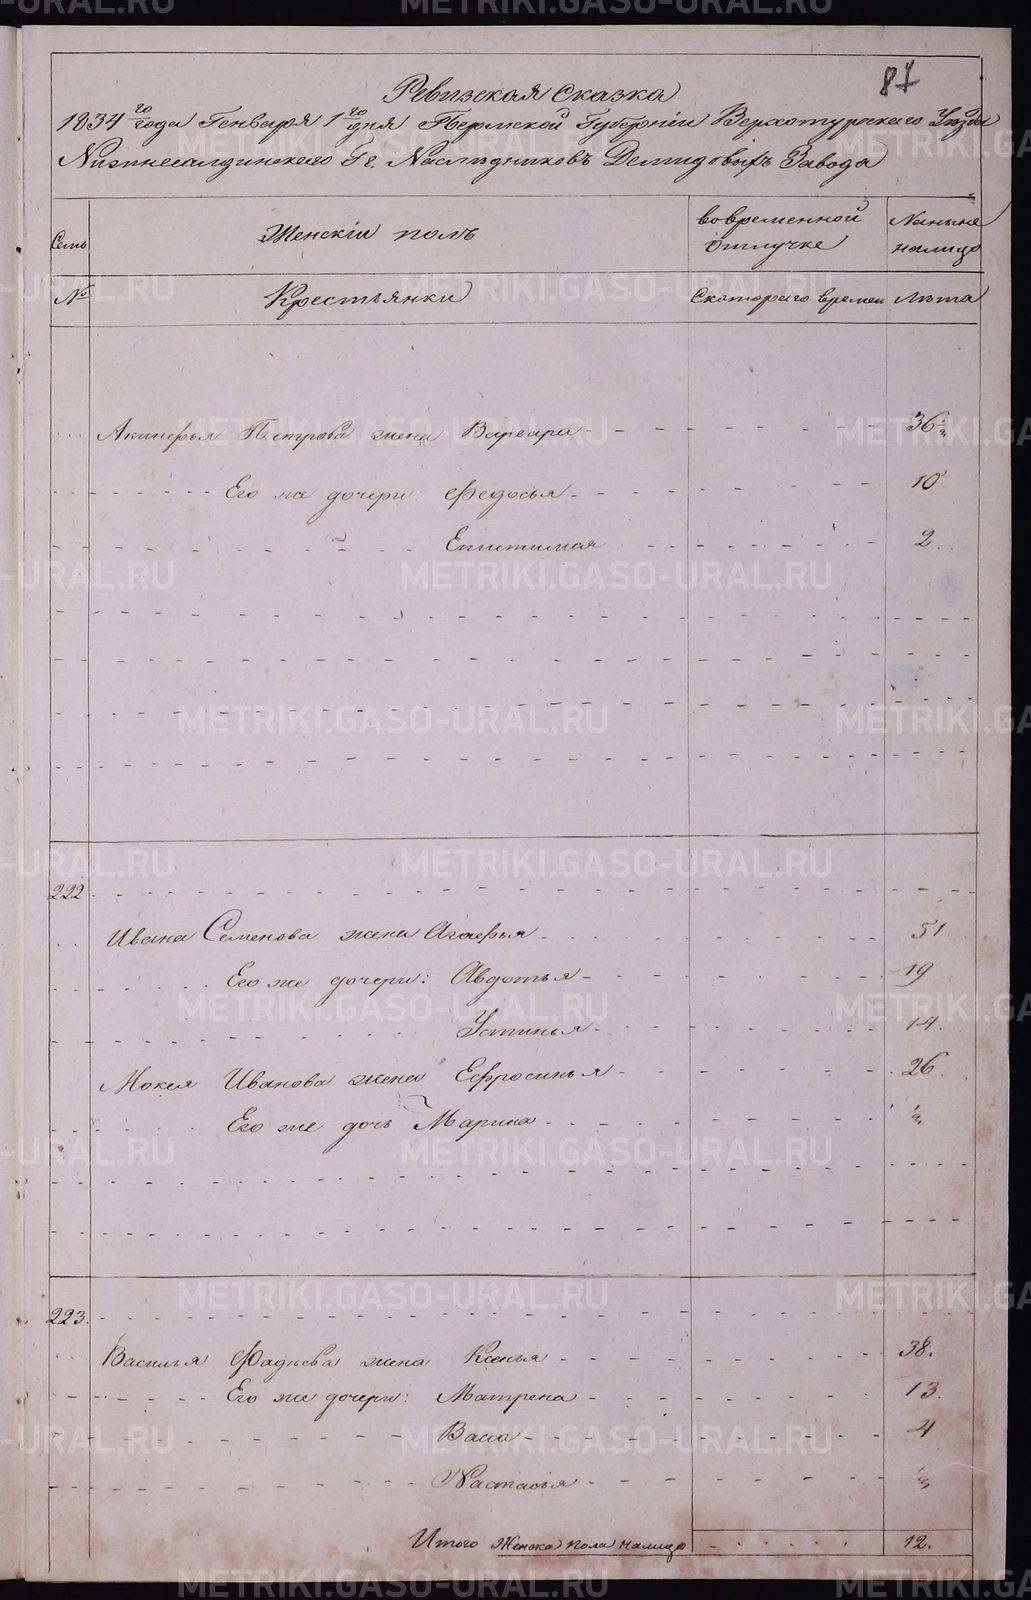 87
Ревизская Сказка
1834го года Генваря 1го дня Пермской Губернiи Верхотурскаго Уѣзда
Нижнесалдинскаго Гг. Наслѣдниковъ Демидовыхъ Завода
Семьи Женскiй полъ вовременной отлучке Наныне налицо
№ Крестьянки Скотораго времени Лѣта
Акинфья Петрова жена Варвара 36 1/2
Его же дочери: Федосья 10
Епистимья 2
222
Ивана Семенова жена Агафья 51
Его же дочери: Авдотья 19
Устинья 14
Мокея Иванова жена Ефросинья 26
Его же дочь Марина
223.
Василья Фадѣева жена Ксенья 38.
Его же дочери: Матрена 13
Васса 4
Настасья
Итого Женска пола налицо 12.
METRIKI.GASO-URAL.RU